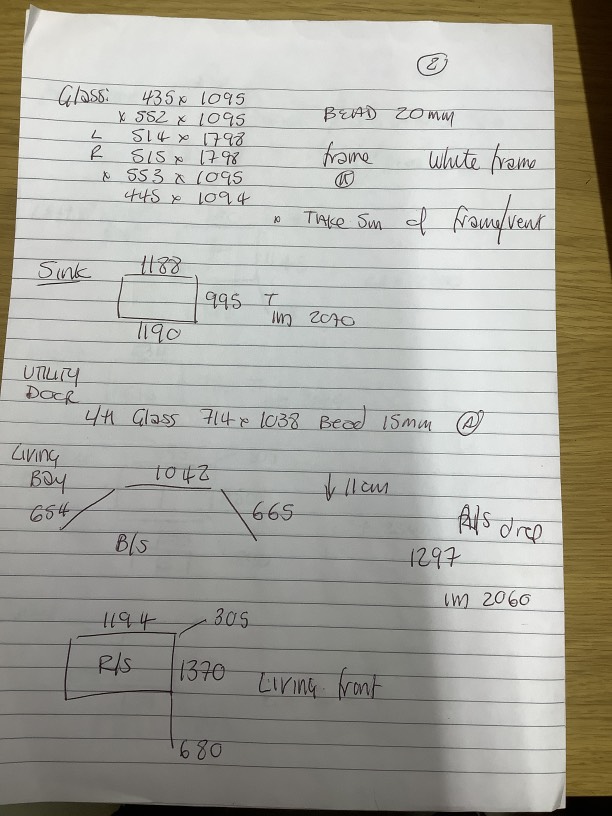 2
Glass: 435 x 1095
x 552 x 1095 BEAD 20mm
L 514 x 1798
R 515 x 1798 frame White frame
x 553 x 1095 A
445 x 1094
x TAKE 5m of frame/vent
Sink 1188
995 T
1m 2070
1190
UTILITY
DOOR
L/H Glass 714 x 1038 Bead 15mm A
Living
Bay 1042 ↓ 11cm
654 665
B/S R/S drop
1297
1m 2060
1194 305
R/S 1370 Living front
680